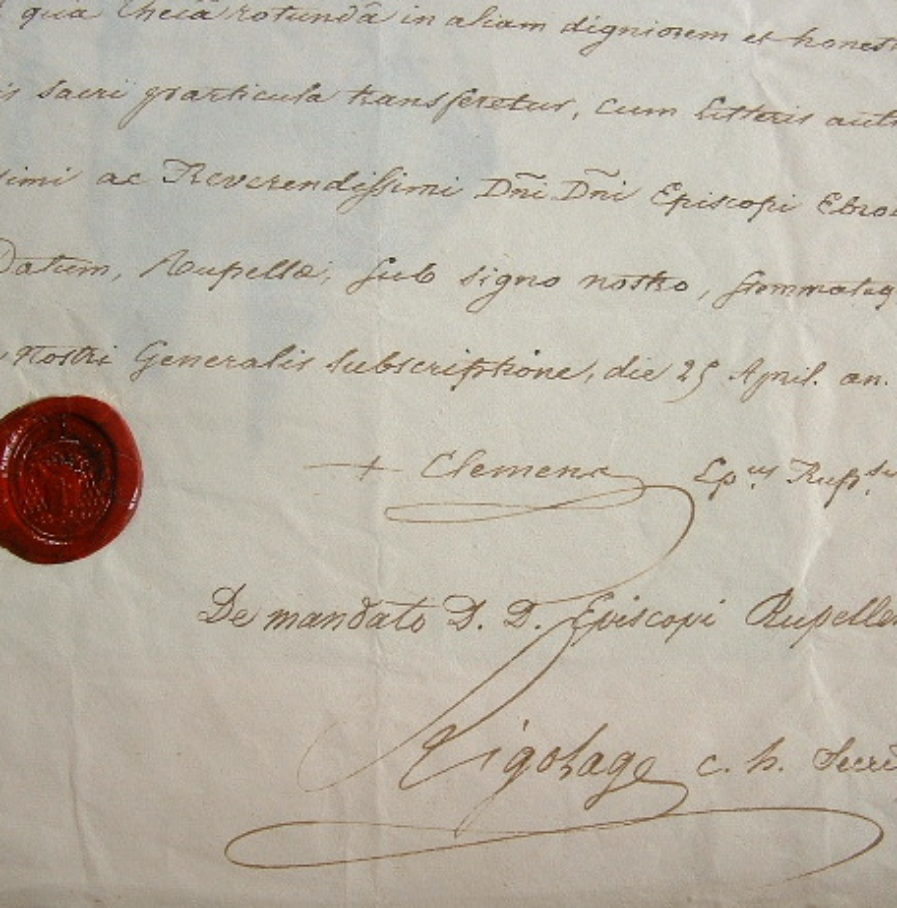 qua thecâ rotundâ in aliam digniorem et honest
is sacri particula transferetur, cum litteris auth
simi ac Reverendissimi Dn̄i Dn̄i Episcopi Ebro
Datum, Rupellæ, sub signo nostro, stemmateq
nostri Generalis subscriptione, die 25 April. an.
+ Clemens Ep.us Rup
De mandato D. D. Episcopi Rupelle
c. h. Secre